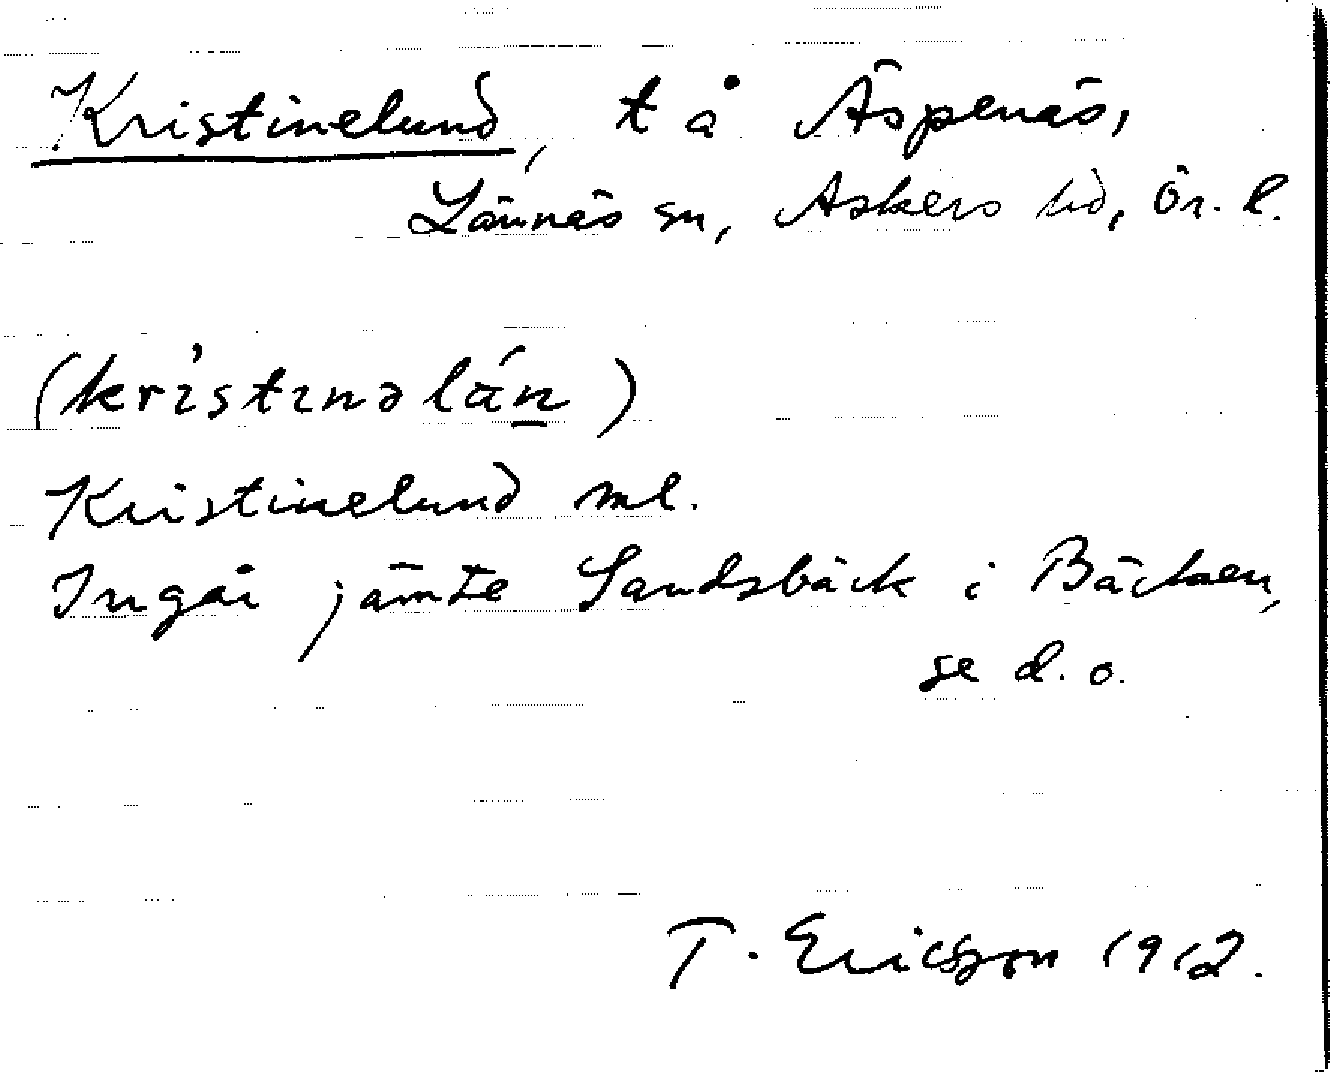 Kristinelund, t å Äspenäs,
Lännäs sn, Askers hd, Ör. l.
(kristinəlán)
Kristinelund ml.
Ingår jämte Sandsbäck i Bäcken,
se d. o.
T. Ericsson 1912.